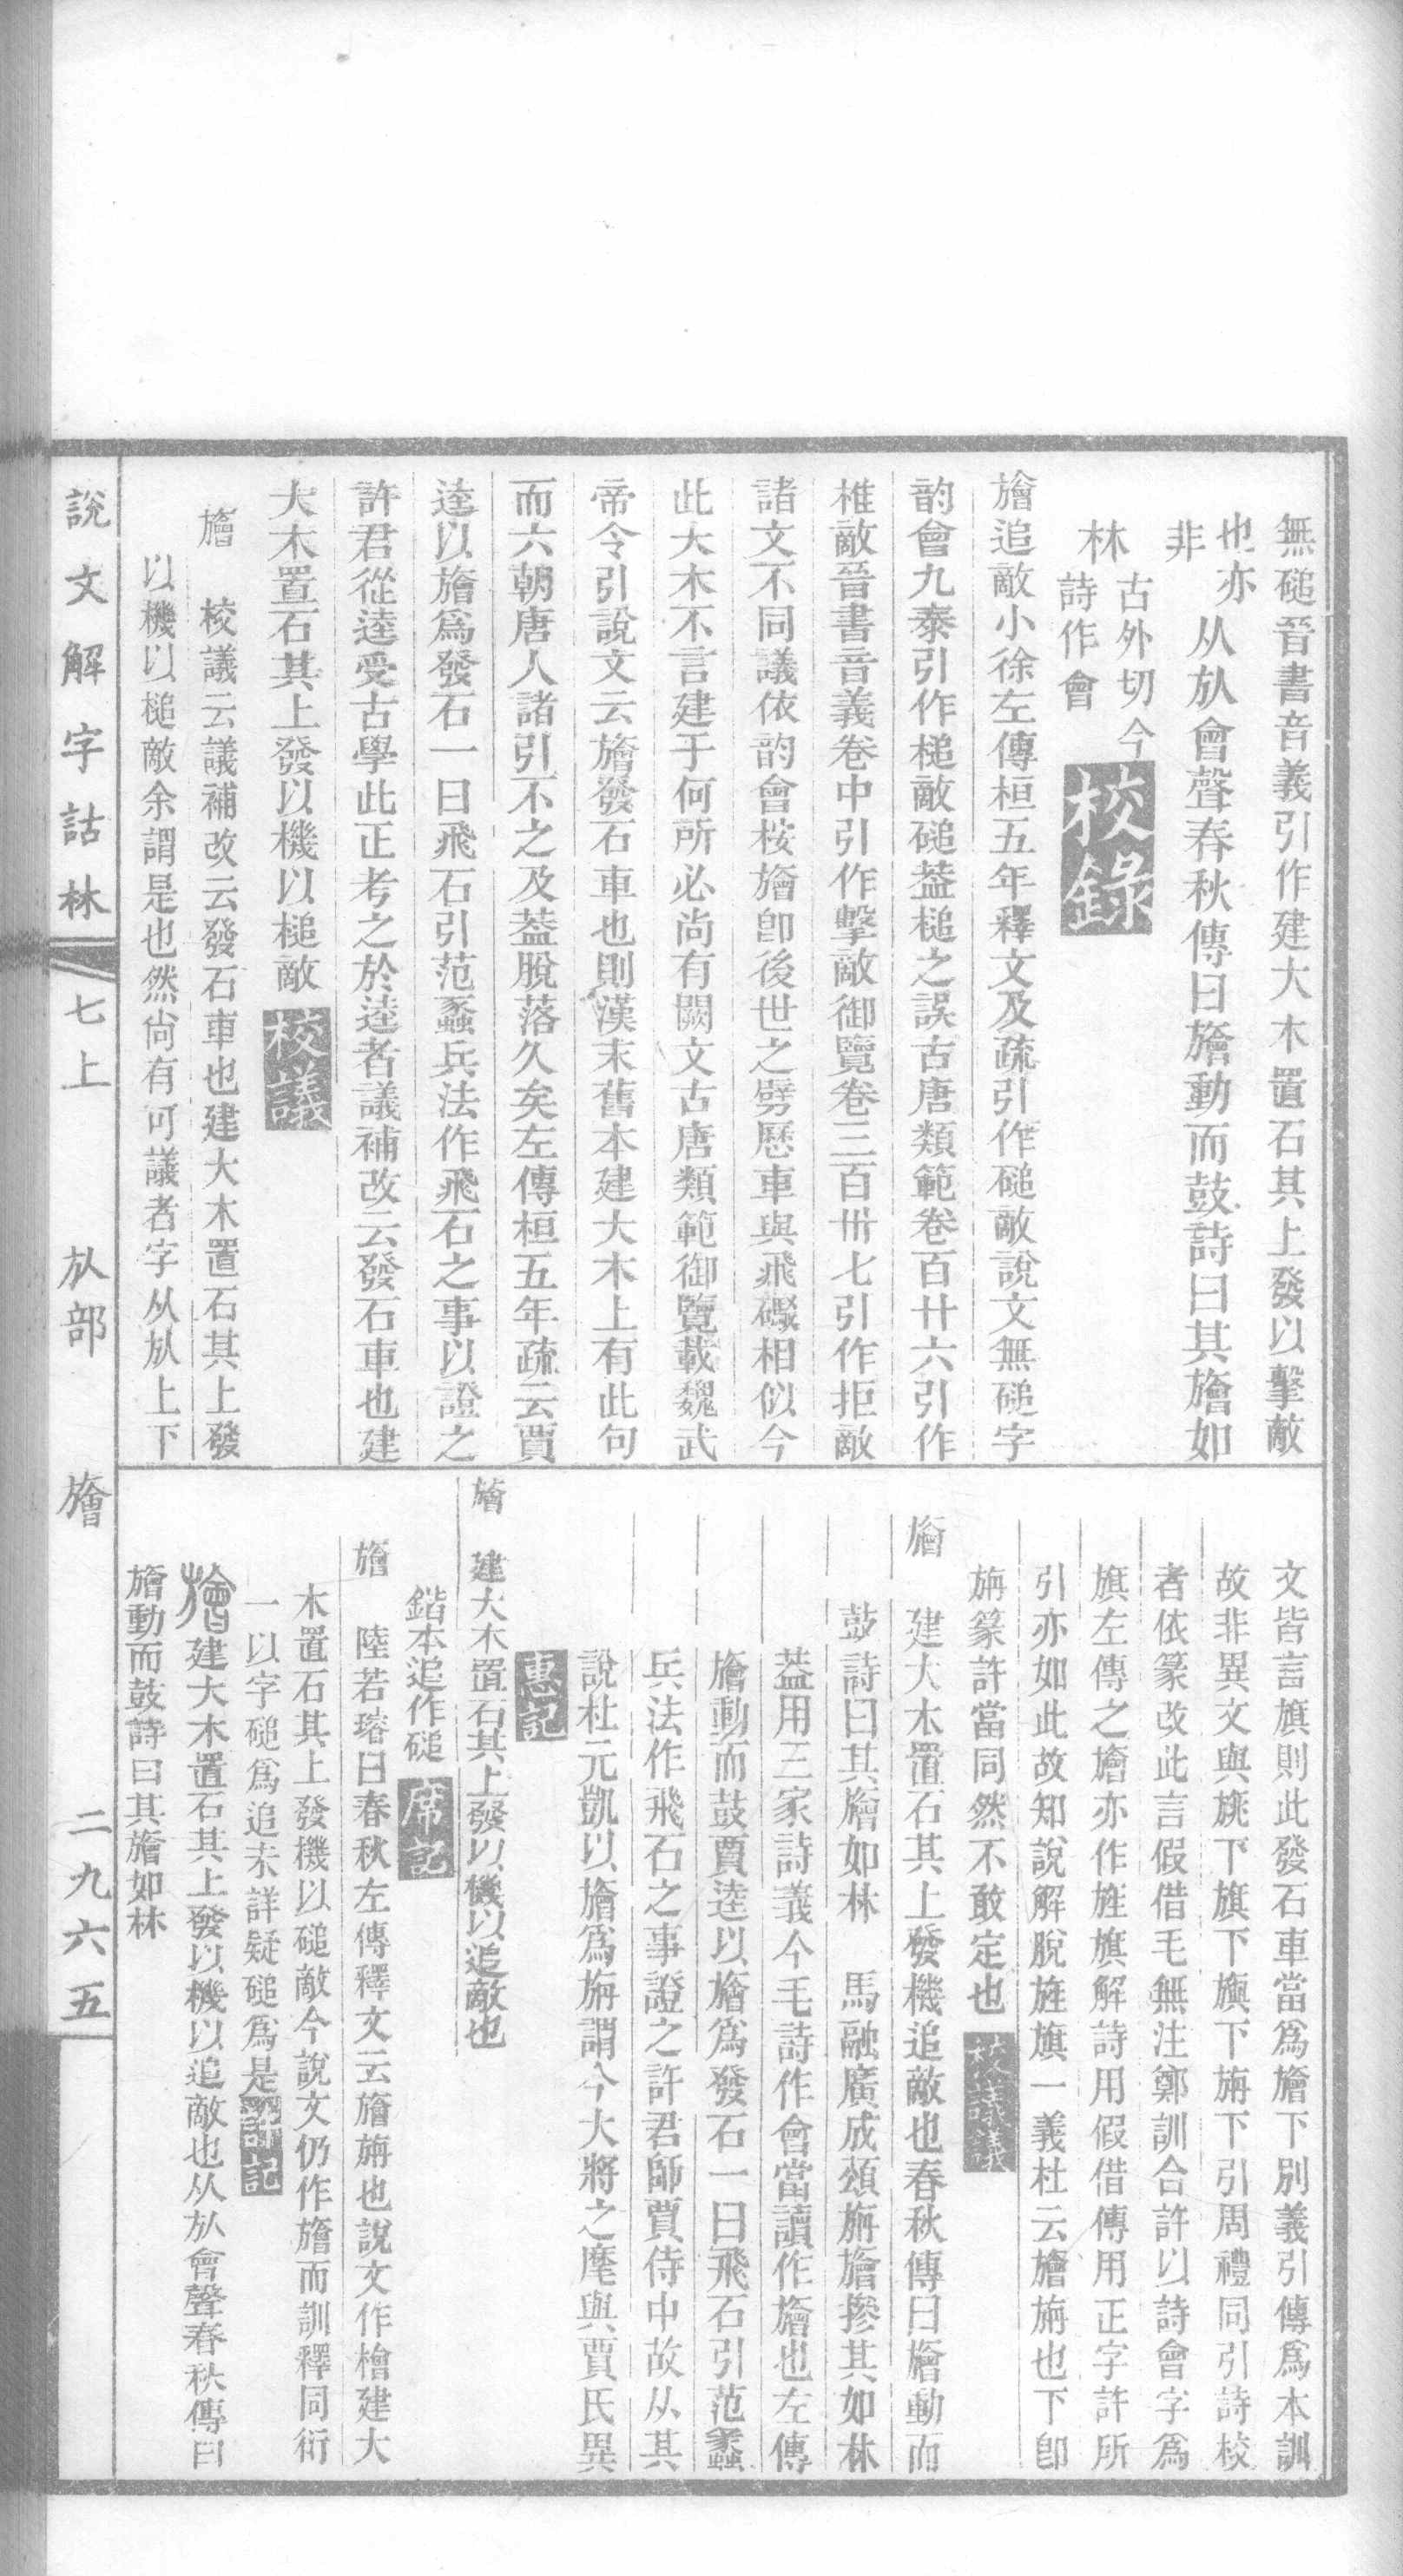 無磓晉書音義引作建大木置石其上發以擊敵
也亦
非
从㫃會聲春秋傳曰旝動而鼓詩曰其旝如
林
古外切今
詩作會
校錄
旝追敵小徐左傳桓五年釋文及疏引作磓敵說文無磓字
韵會九泰引作槌敵磓葢槌之誤古唐類範卷百廿六引作
椎敵晉書音義卷中引作擊敵御覽卷三百卅七引作拒敵
諸文不同議依韵會桉旝卽後世之劈歷車與飛礮相似今
此大木不言建于何所必尚有闕文古唐類範御覽載魏武
帝令引說文云旝發石車也則漢末舊本建大木上有此句
而六朝唐人諸引不之及葢脫落久矣左傳桓五年疏云賈
逵以旝爲發石一曰飛石引范蠡兵法作飛石之事以證之
許君從逵受古學此正考之於逵者議補改云發石車也建
大木置石其上發以機以槌敵 校議
旝 校議云議補改云發石車也建大木置石其上發
以機以槌敵余謂是也然尙有可議者字从㫃上下
文皆言旗則此發石車當爲旝下別義引傳爲本訓
故非異文與旐下旗下旟下旃下引周禮同引詩校
者依篆改此言假借毛無注鄭訓合許以詩會字爲
旗左傳之旝亦作旌旗解詩用假借傳用正字許所
引亦如此故知說解脫旌旗一義杜云旝旃也下卽
旃篆許當同然不敢定也 校議議
旝 建大木置石其上發機追敵也春秋傳曰旝動而
鼓詩曰其旝如林 馬融廣成頌旃旝摻其如林
葢用三家詩義今毛詩作會當讀作旝也左傳
旝動而鼓賈逵以旝爲發石一曰飛石引范蠡
兵法作飛石之事證之許君師賈侍中故从其
說杜元凱以旝爲旃謂今大將之麾與賈氏異
惠記
旝 建大木置石其上發以機以追敵也
鍇本追作磓 席記
旝 陸若璿曰春秋左傳釋文云旝旃也說文作檜建大
木置石其上發機以磓敵今說文仍作旝而訓釋同衍
一以字磓爲追未詳疑磓爲是 記
旝建大木置石其上發以機以追敵也从㫃會聲春秋傳曰
旝動而鼓詩曰其旝如林
說文解字詁林 七上 㫃部 旝 二九六五